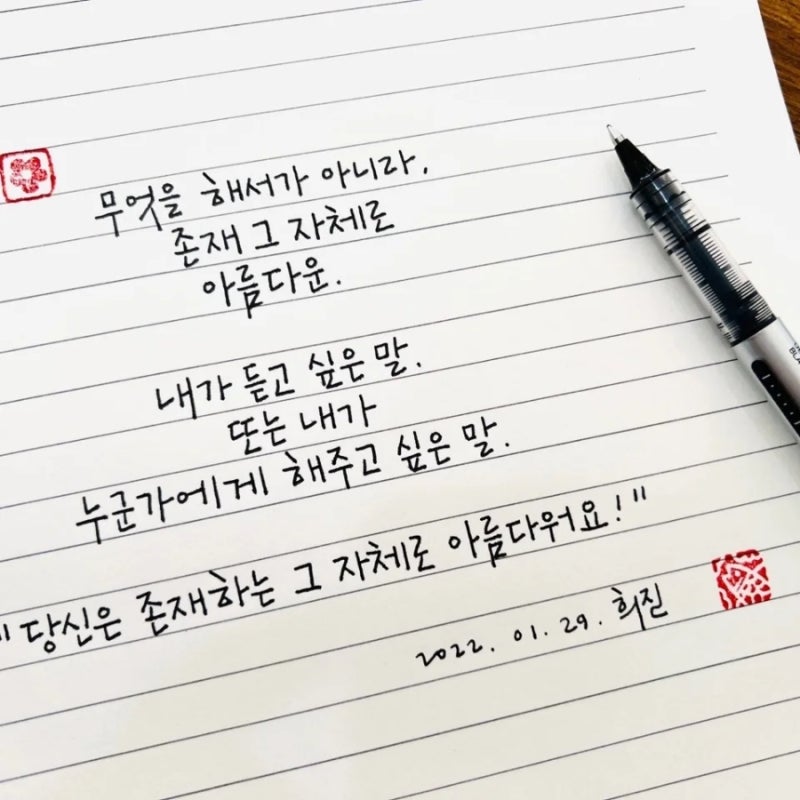 무엇을 해서가 아니라.
존재 그 자체로
아름다운.
내가 듣고 싶은 말.
또는 내가
누군가에게 해주고 싶은 말.
"당신은 존재하는 그 자체로 아름다워요!"
2022. 01. 29. 희진